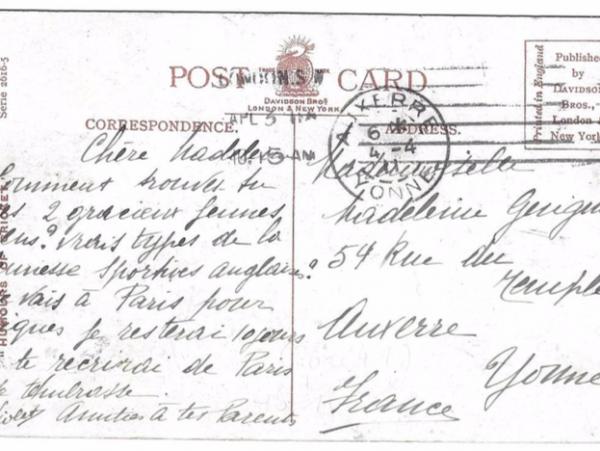 POST CARD
LONDON.S.W
DAVIDSON BROS
LONDON & NEW YORK
Published
by
DAVIDSON
BROS.,
London &
New York
Printed in England
Serie 2616-5
"HUMOURS OF CRICKET
APL 5
10.15 AM
AUXERRE
6 * 4-4
YONNE
CORRESPONDENCE.
ADDRESS.
Chère Madeleine
Comment trouves tu
2 gracieux jeunes
? Vrais types de la
jeunesse sportives anglaise?
vais à Paris pour
je resterai 10 jours
te recrirai de Paris
t'embrasse
Amitiés à tes Parents
Mademoiselle
Madeleine
54 Rue du
Temple
Auxerre
Yonne
France